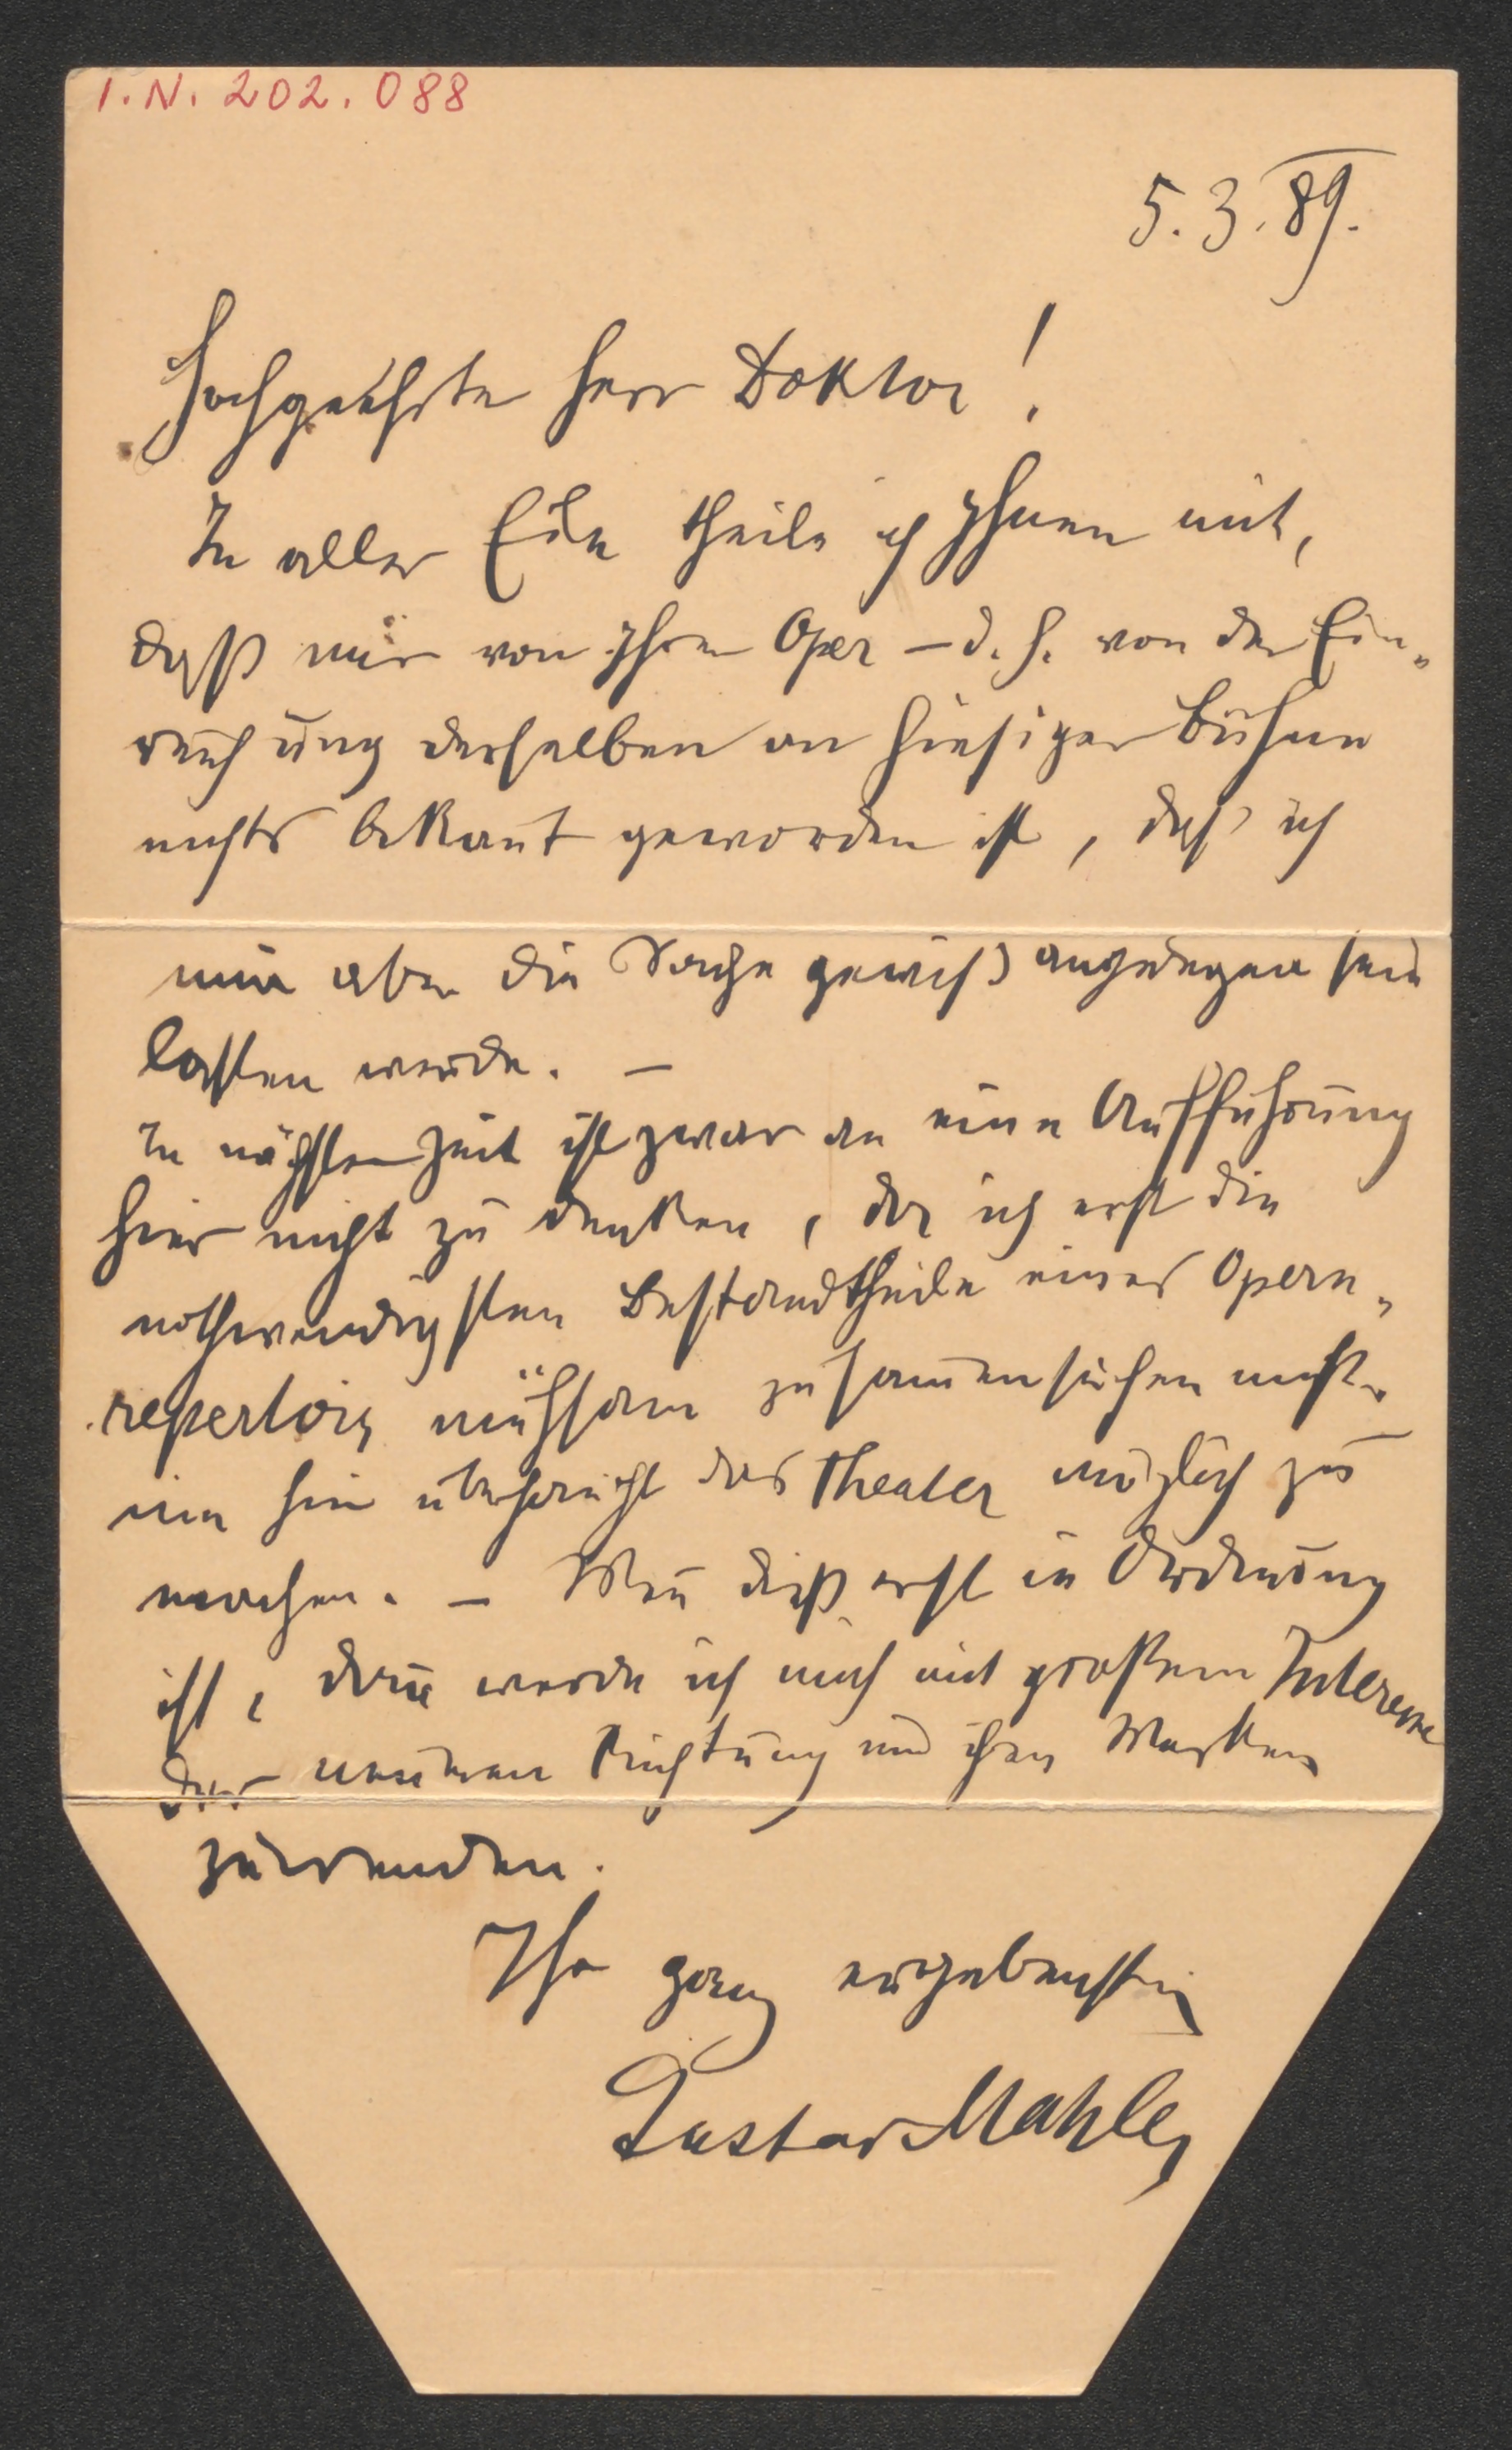 I.N. 202.088
5.3.89.
Hochgeehrter Herr Doktor!
In aller Eile theile ich Ihnen mit,
daß mir von Ihrer Oper – d. h. von der Ein„
reichung derselben an hiesiger Bühne
nichts bekan̄t geworden ist, daß ich
mir aber die Sache gewiß angelegen sein
lassen werde. –
In nächster Zeit ist zwar an eine Aufführung
hier nicht zu denken, da ich erst die
nothwendigsten Bestandtheile eines Opern„
repertoirs mühsam zusam̄ensuchen muß
um hier überhaupt das Theater möglich zu
machen. – Wen̄ dieß erst in Ordnung
ist, dan̄ werde ich mich mit großem Interesse
der neueren Richtung und ihren Werken
zuwenden.
Ihr ganz ergebenster
Gustav Mahler